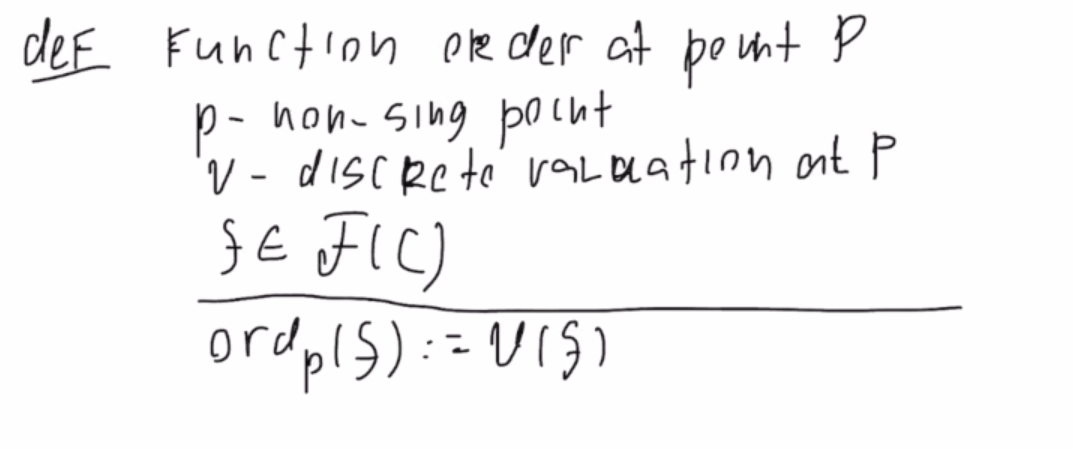 def Function order at point P
p - non-sing point
V - discrete valuation at P
f ∈ F(C)
ord_p(f) := V(f)